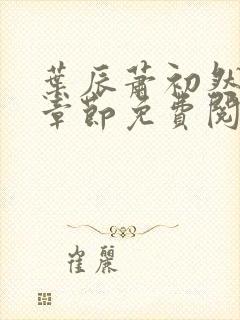 葉辰蕭初然
章節免費閱
崔麗